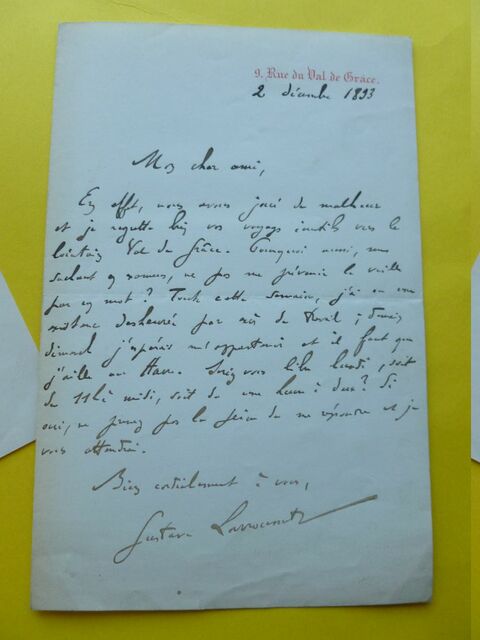 9, Rue du Val de Grâce.
2 décembre 1893
Mon cher ami,
En effet, nous avons joué de malheur
et je regrette bien vos voyages inutiles vers le
lointain Val de Grâce. Pourquoi aussi, me
sachant y sommes, ne pas me prévenir la veille
par un mot ? Toute cette semaine, j'ai eu une
existence désheurée par excès de travail ; demain
dimanche j'espérais m'appartenir et il faut que
j'aille au Havre. Seriez-vous libre lundi, soit
de 11h à midi, soit de une heure à deux ? Si
oui, ne prenez pas la peine de me répondre et je
vous attendrai.
Bien cordialement à vous,
Gustave Larroumet